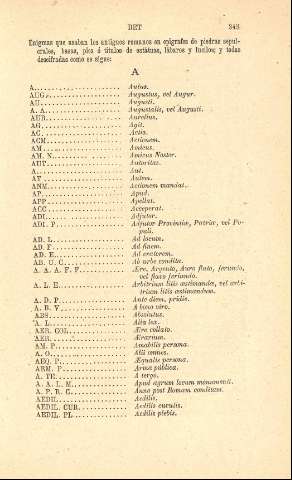 DET 343
Enigmas que usaban los antiguos romanos en epígrafes de piedras sepul-
crales, basas, piés ó títulos de estátuas, lábaros y túmlos; y todas
descifradas como se sigue:
A
A. Aulus.
AUG. Augustus, vel Augur.
AU. Augusti.
A. A. Augustalis, vel Augusti.
AUR. Aurelius.
AG. Agit.
AC. Actio.
ACM. Actionem.
AM. Amicus.
AM. N. Amicus Noster.
AUT. Autoritas.
A. Aut.
AT. Autem.
ANM. Actionem manciat.
AP. Apud.
APP. Apellat.
ACC. Acceperat.
ADI. Adjutor.
ADI. P. Adjutor Provinciæ, Patriæ, vel Po-
puli.
AD. L. Ad locum.
AD. F. Ad finem.
AD. E. Ad exctorem.
AB. U. C. Ab urbe condita.
A. A. A. F. F. Ære, Argento, Auro flato, feriundo,
vel flavo feriundo.
A. L. E. Arbitrium litis æstimandæ, vel arbi-
trium litis æstimandum.
A. D. P. Ante diem, pridie.
A. B. V. A bono viro.
ABS. Absolutus.
A. L. Alia lex.
AER. COL. Ære collato.
AER. Ærarium.
AM. P. Amabilis persona.
A. O. Alii omnes.
AEQ. P. Æqualis persona.
ARM. P. Arma pública.
A. TE. A tergo.
A. A. L. M. Apud agrum locum monumenti.
A. P. R. C. Anno post Romam conditam.
AEDIL. Aedilis.
AEDIL. CUR. Aedilis curulis.
AEDIL. PL. Aedilis plebis.